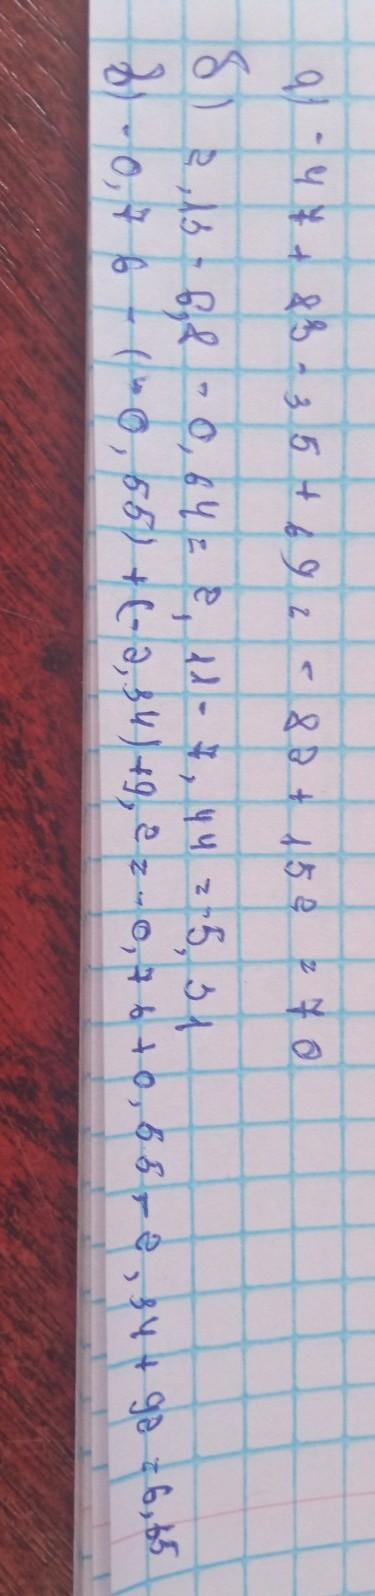 а) -47 + 83 - 35 + 69 = -82 + 152 = 70
б) 2,13 - 6,8 - 0,64 = 2,11 - 7,44 = -5,31
в) -0,76 - (-0,55) + (-2,34) + 9,2 = -0,76 + 0,55 - 2,34 + 92 = 6,65